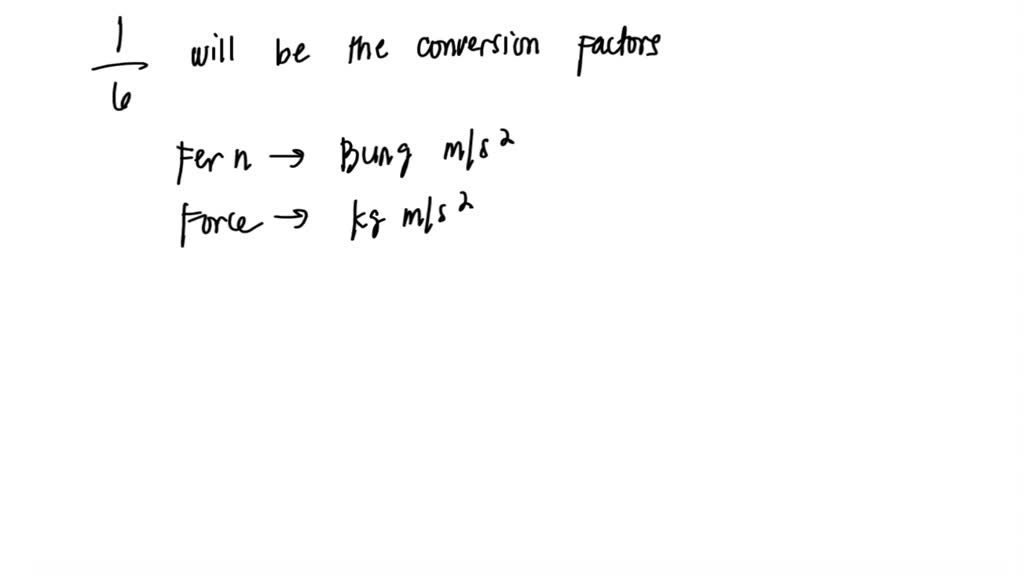 1/6 will be the conversion factors
Fern → Bung m/s²
Force → kg m/s²